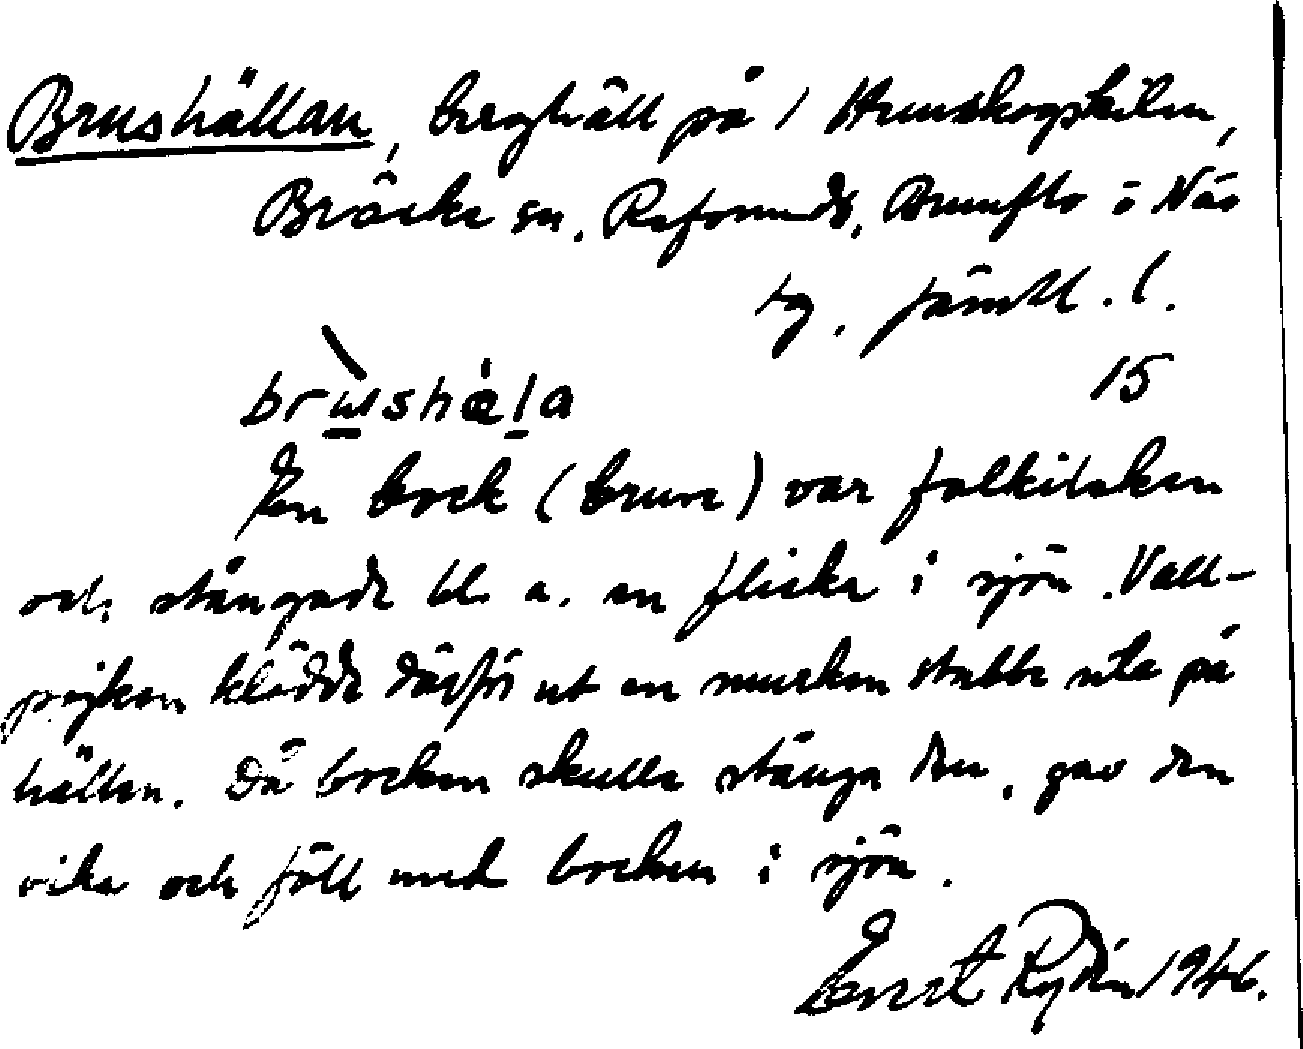 Brushällan, berghäll på / Hunskogskilen,
Bräcke sn. Refsunds, Brunflo o Näs
tg. Jämtl. l.
15
brùshæ̀la
En bock (bruse) var folkilsken
och stångade bl. a. en flicka i sjön. Vall-
pojken klädde därför ut en murken stubbe ute på
hällen. Då bocken skulle stånga den, gav den
vika och föll med bocken i sjön.
Ernst Rydén 1946.